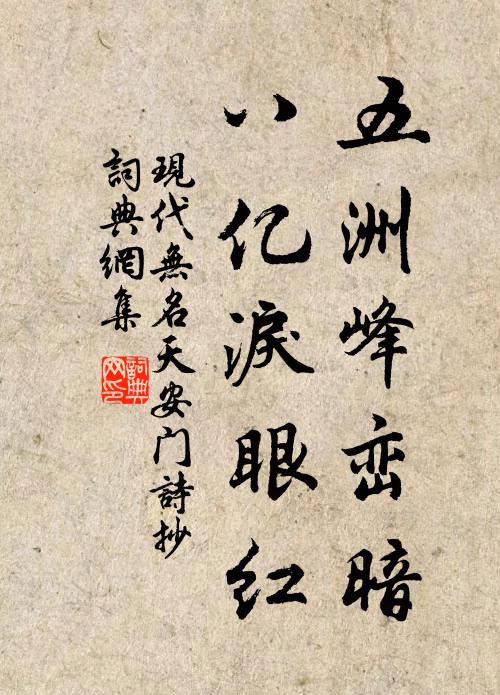 五洲峰峦暗
八亿淚眼红
現代無名天安门詩抄
詞典網集
詞典
网印